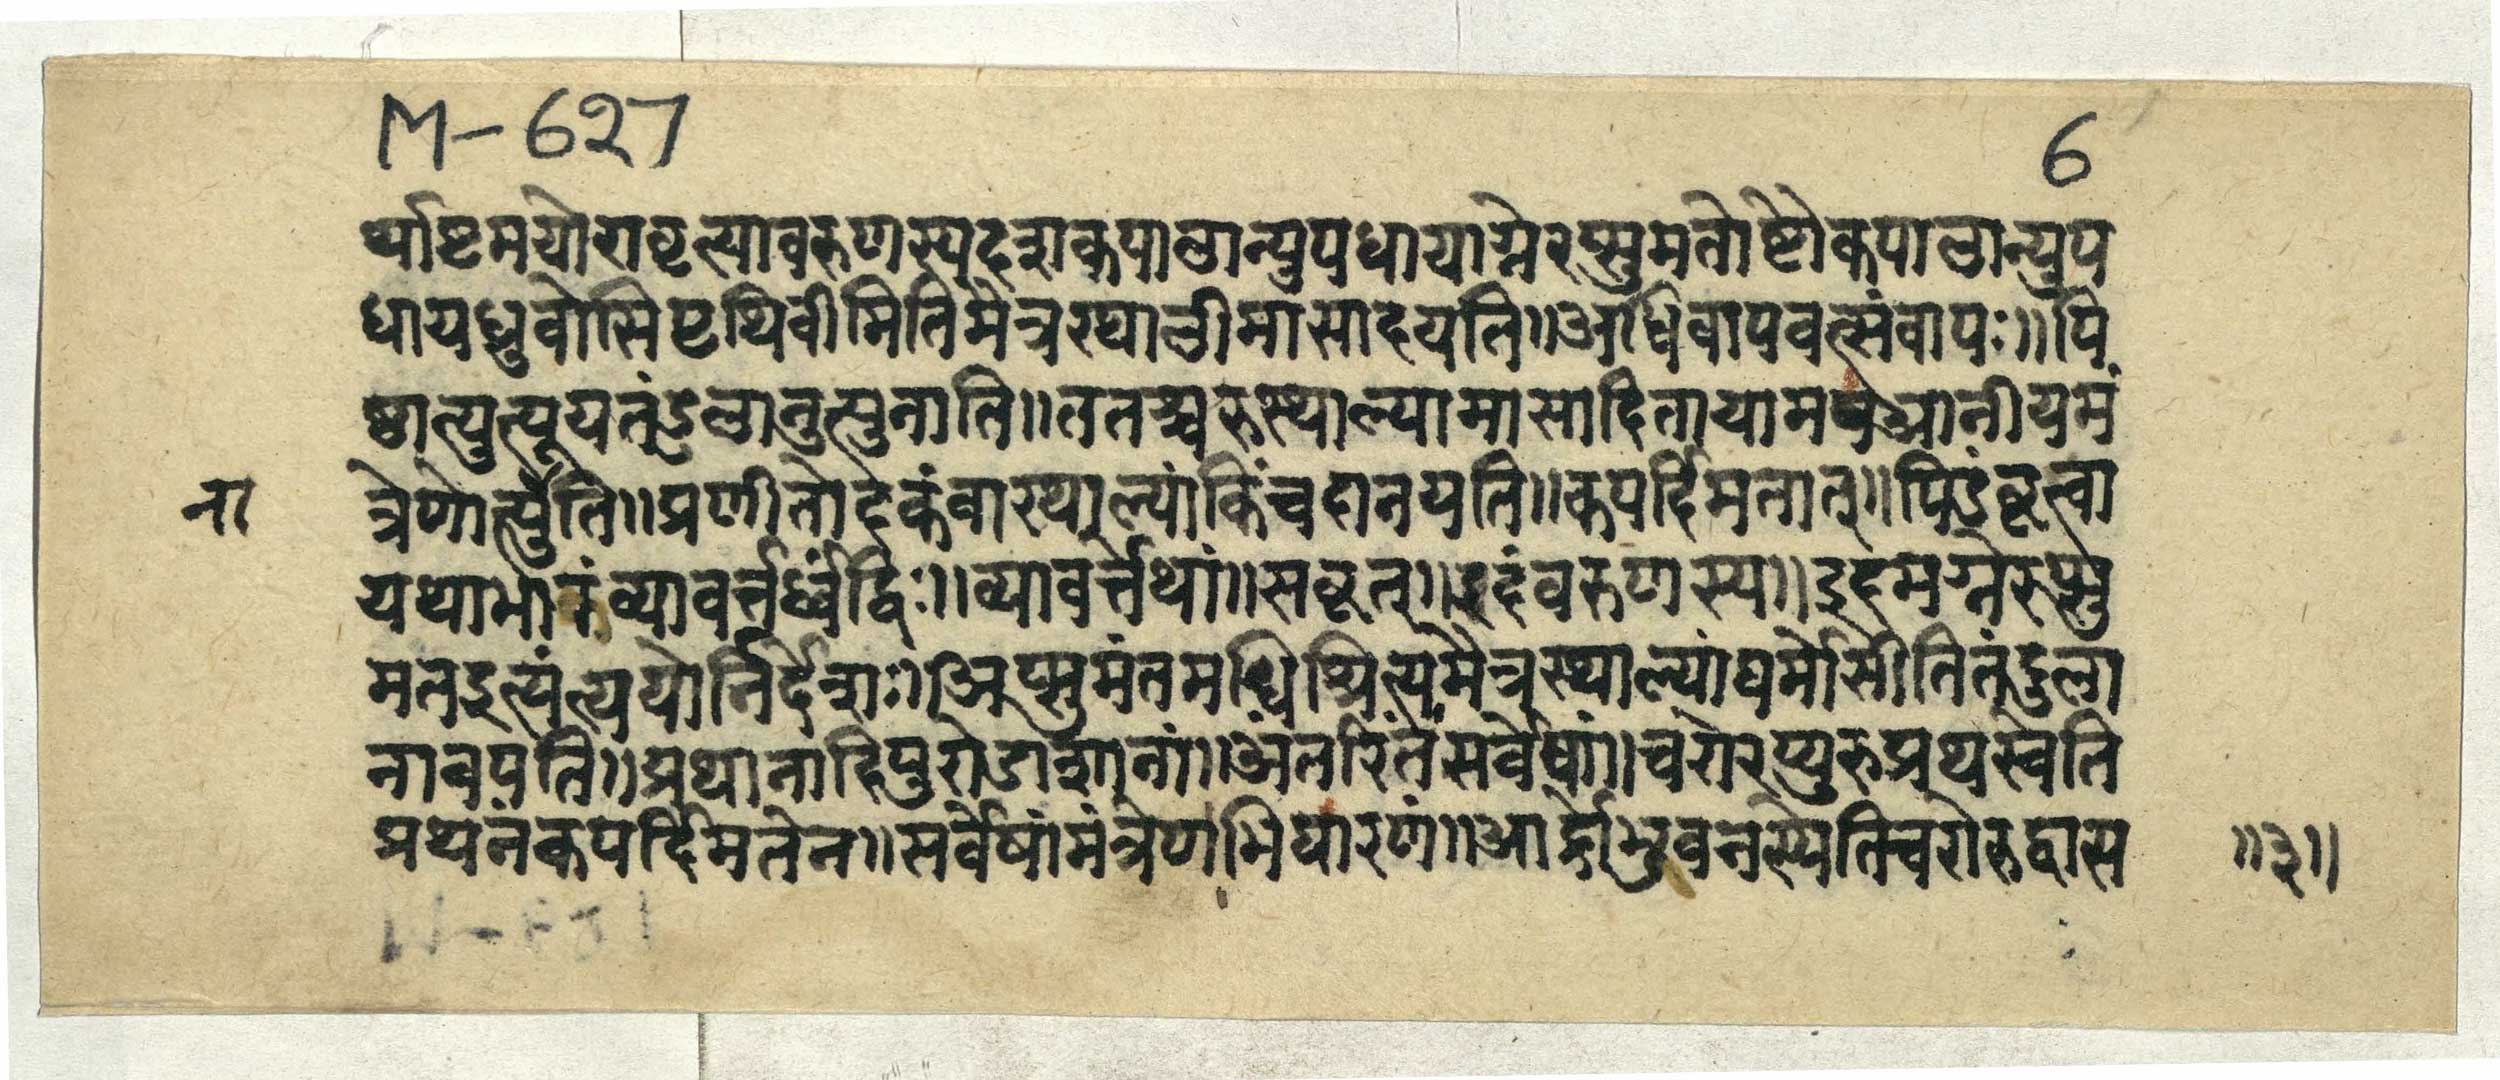 M-627
6
र्थाष्टमयोरावृत्यावरुणस्यदशकपालान्युपधायाग्नेरप्सुमतोष्टौकपालान्युप
धायध्रुवोसिपृथिवीमितिमैत्रस्थालीमासादयति॥अधिवापवत्संवापः॥पि
ष्ठात्युत्पूयतंडुलानुत्पुनाति॥ततश्चरुस्थाल्यामासादितायामपआनीयमं
त्रेणोर्त्पुति॥प्रणीतोदकंवास्थाल्यांकिंचदानयति॥कपर्दिमतात्॥पिंडंकृत्वा
ना
यथाभागंव्यावर्त्तर्ध्वंद्विः॥व्यावर्त्तेथां॥सकृत्॥इदंवरुणस्य॥इदमग्नेरप्सु
मतइत्यंत्ययोर्निर्देशः॥अप्सुमंतमधिश्रित्यमैत्रस्थाल्यांघर्मोसीतितंडुला
नावपति॥प्रथानाहिपुरोडाशानां॥अंतरितंसर्वेषां॥चरोरप्युरुप्रथस्वेति
प्रथनंकपर्दिमतेन॥सर्वेषांमंत्रेणाभिघारणं॥आर्द्रोभुवनस्येतिचरोरुद्वास
॥३॥